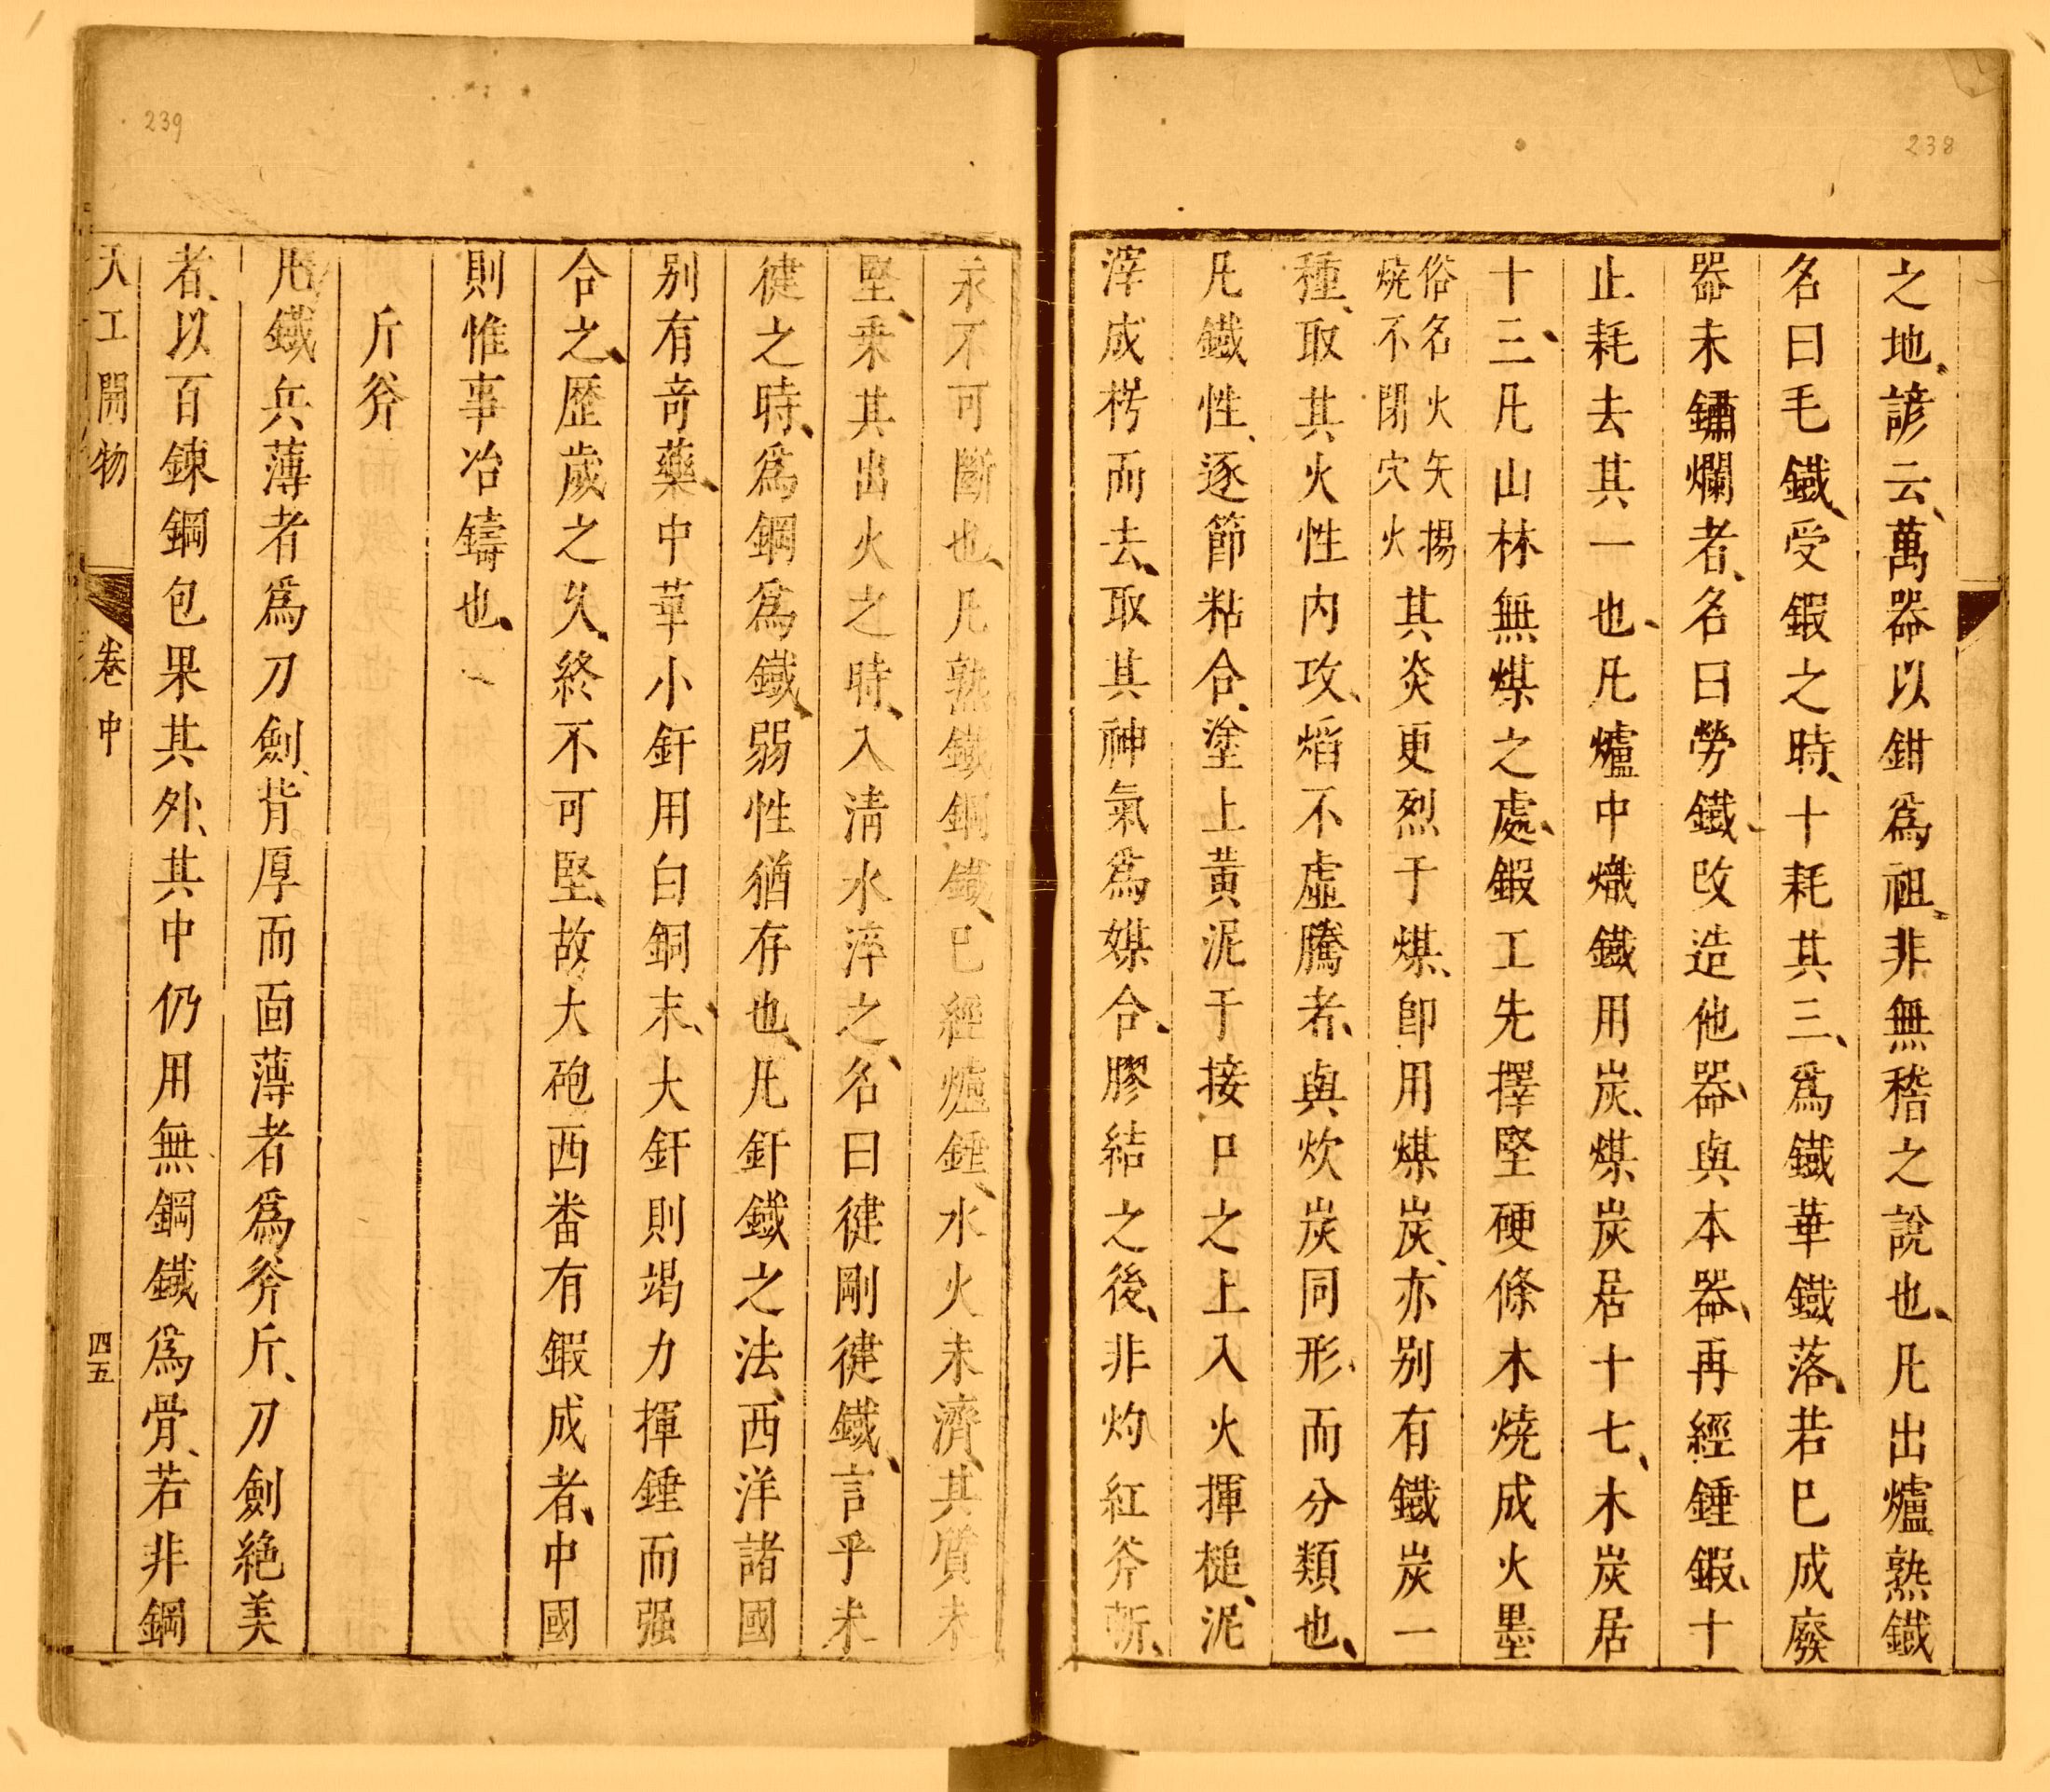 238
之地、諺云、萬器以鉗爲祖、非無稽之說也、凡出爐熟鐵
名曰毛鐵、受鍜之時、十耗其三、爲鐵華鐵落、若巳成廢
器未鏽爛者、名曰勞鐵、改造他器、與本器、再經錘鍜、十
止耗去其一也、凡爐中熾鐵用炭、煤炭居十七、木炭居
十三、凡山林無煤之處、鍜工先擇堅硬條木燒成火墨
俗名火矢揚
燒不閉穴火
其炎更烈于煤、即用煤炭、亦别有鐵炭一
種、取其火性内攻、焰不虛騰者、與炊炭同形、而分類也、
凡鐵性、逐節粘合、塗上黃泥于接口之上入火揮槌、泥
滓成枵而去、取其神氣爲媒合、膠結之後、非灼紅斧斬、
239
永不可斷也、凡熟鐵鋼鐵、巳經爐錘、水火未濟、其質未
堅、乘其出火之時、入淸水淬之、名曰徤剛徤鐵、言乎未
徤之時、爲鋼爲鐵、弱性猶存也、凡釬鐵之法、西洋諸國
别有竒藥、中華小釬用白銅末、大釬則竭力揮錘而强
合之、歷歲之久、終不可堅、故大砲西畨有鍜成者、中國
則惟事冶鑄也、
斤斧
凡鐵兵薄者爲刀劍、背厚而面薄者爲斧斤、刀劍絕美
者、以百鍊鋼包果其外、其中仍用無鋼鐵爲骨、若非鋼
天工開物
卷中
四五